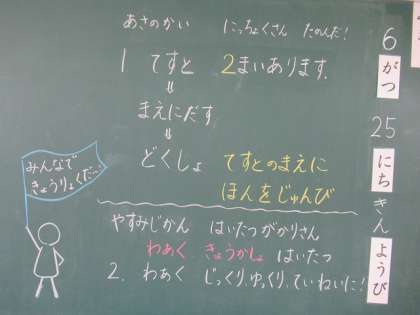 あさのかい　にっちょくさん　たのんだ！
1　てすと　2まいあります。
⇓
まえにだす
⇓
どくしょ　てすとのまえに
ほんをじゅんび
みんなで
きょうりょくだ〜
やすみじかん　はいたつがかりさん
わあく　きょうかしょ　はいたつ
2.　わあく　じっくり、ゆっくり、ていねいに！
6
がつ
25
にち
きん
ようび